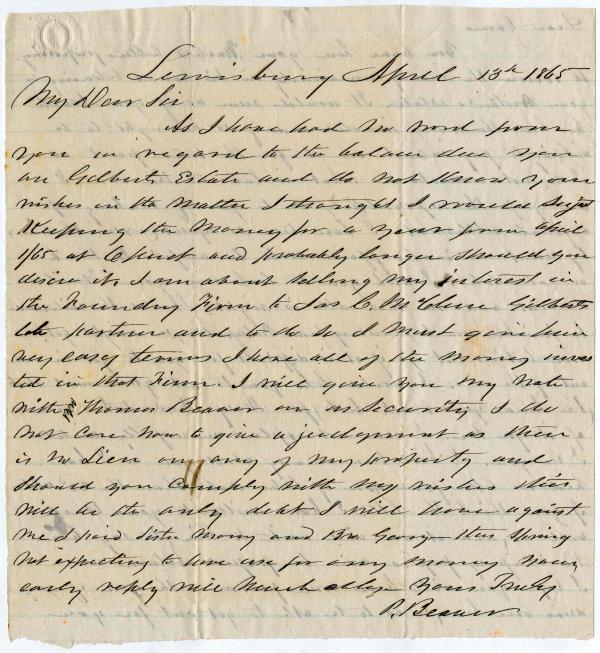 Lewisburg April 13th 1865
My Dear Sir
As I have had no word from
you in regard to the balance due you
on Gilberts Estate and do not know your
wishes in the matter I thought I would
Keeping the Money for a year from April
1/65 at 6 and probably longer should you
desire it, I am about selling my interest in
the Foundry Firm to Jas C. McClure Gilberts
late partner and to do so I must give him
very easy terms I have all of the money inves
ted in that Firm. I will give you my note
with Thomas Beaver on as Security I do
not care how to give a judgement as there
is no Lien on any of my property and
should you comply with my wishes this
will be the only debt I will have against
me I paid Sister Mary and Bro. George this Spring
not expecting to have use for any money your
early reply will much oblige Yours Truly
P. Beaver